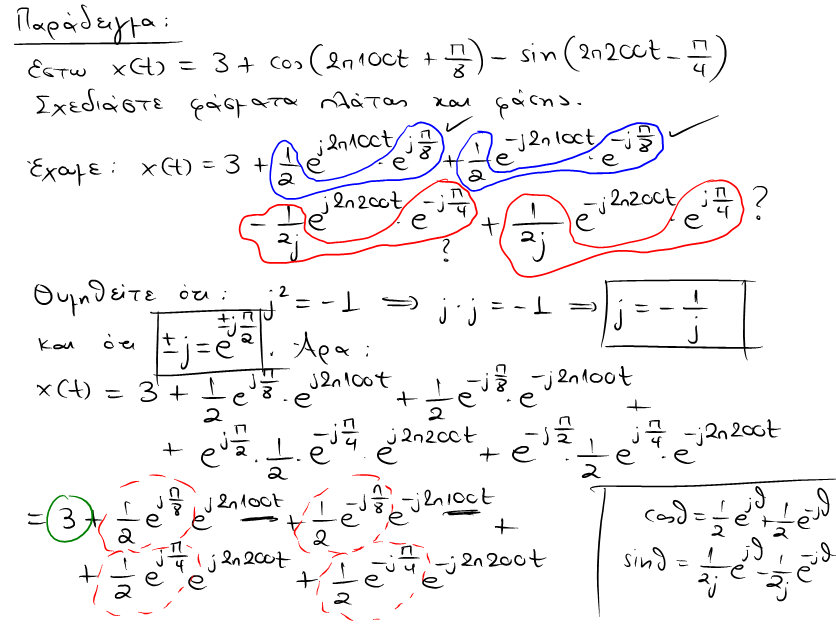 Παράδειγμα:
Έστω x(t) = 3 + cos(2π100t + π/8) − sin(2π200t − π/4)
Σχεδιάστε φάσματα πλάτους και φάσης.
Έχουμε: x(t) = 3 + 1/2 e^{j2π100t} · e^{jπ/8} + 1/2 e^{-j2π100t} · e^{-jπ/8}
− 1/2j e^{j2π200t} · e^{-jπ/4} + 1/2j e^{-j2π200t} · e^{jπ/4} ?
?
Θυμηθείτε ότι: j² = −1 ⇒ j·j = −1 ⇒ j = − 1/j
και ότι ±j = e^{±jπ/2}. Άρα:
x(t) = 3 + 1/2 e^{jπ/8} · e^{j2π100t} + 1/2 e^{-jπ/8} · e^{-j2π100t} +
+ e^{jπ/2} · 1/2 · e^{-jπ/4} · e^{j2π200t} + e^{-jπ/2} · 1/2 e^{jπ/4} · e^{-j2π200t}
= 3 + 1/2 e^{jπ/8} e^{j2π100t} + 1/2 e^{-jπ/8} e^{-j2π100t} +
+ 1/2 e^{jπ/4} e^{j2π200t} + 1/2 e^{-jπ/4} e^{-j2π200t}
cosθ = 1/2 e^{jθ} + 1/2 e^{-jθ}
sinθ = 1/2j e^{jθ} − 1/2j e^{-jθ}